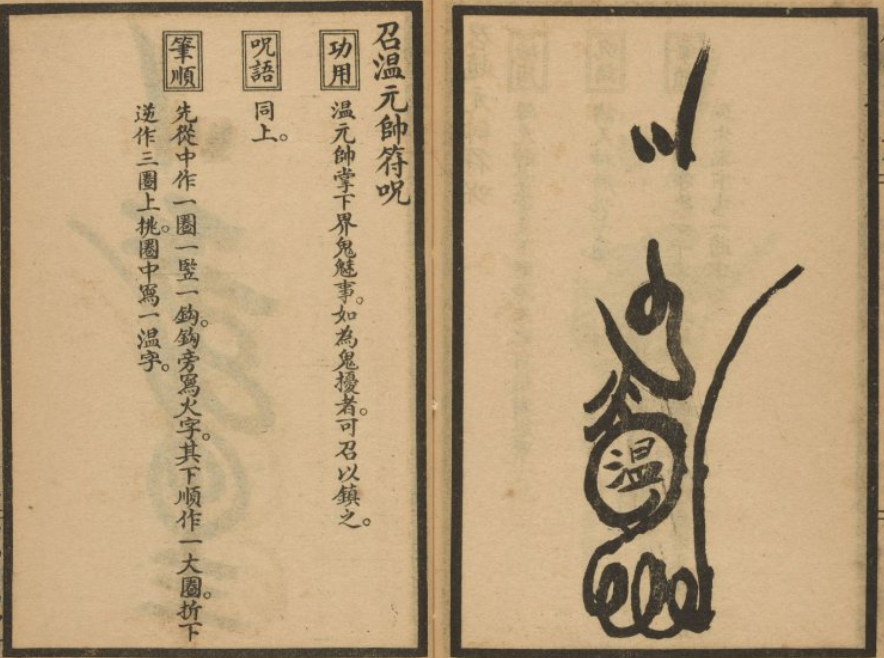 召温元帥符呪
功用
温元帥掌下界鬼魅事。如為鬼擾者。可召以鎮之。
呪語
同上。
筆順
先從中作一圈一監一鈎。鈎旁寫火字。其下順作一大圈。折下
逆作三圈上挑。圈中寫一温字。
温